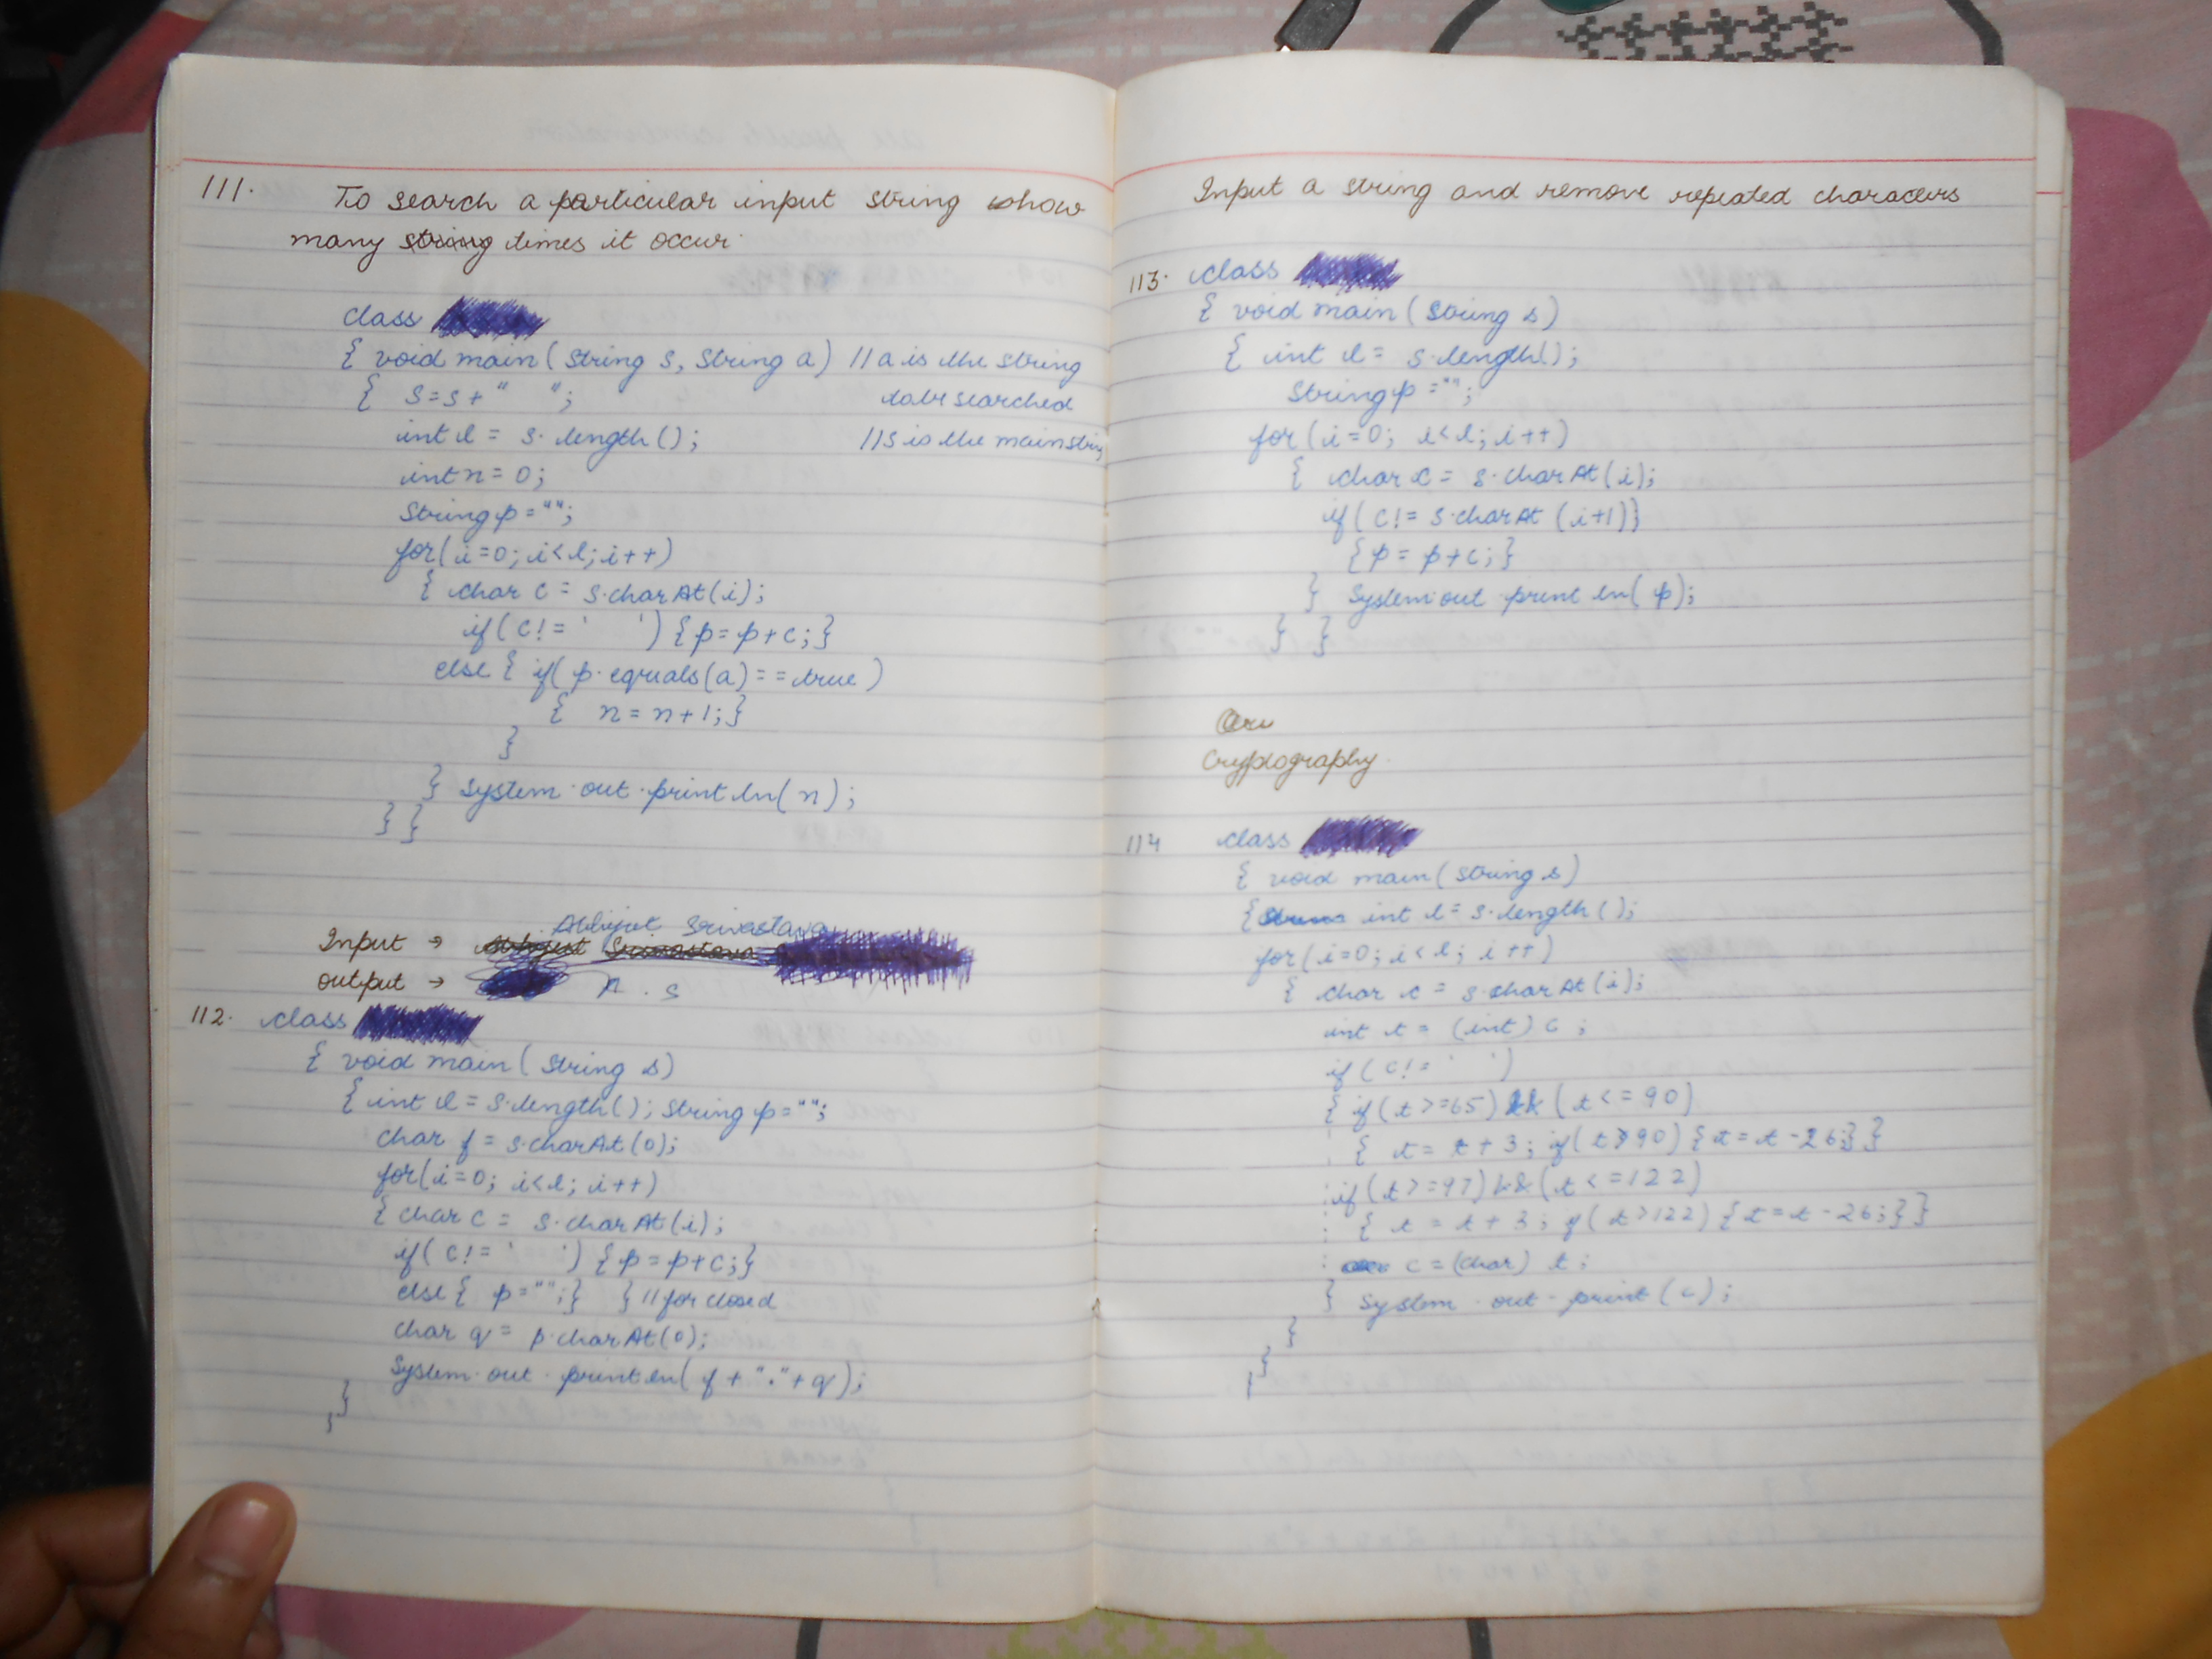 111. To search a particular input string show
many string times it occur.
class
{ void main ( String s, String a) // a is the string
{ s = s + " "; to be searched
int l = s.length(); // s is the main strin
int n = 0;
String p = "";
for(i=0; i<l; i++)
{ char c = s.charAt(i);
if(c!= ' ') {p = p+c;}
else { if( p.equals(a) == true )
{ n = n+1; }
}
} System.out.println( n );
} }
Srivastava
Input → Srivastava
output → . s
112. class
{ void main ( String s)
{ int l = s.length(); String p = "";
char f = s.charAt(0);
for(i=0; i<l; i++)
{ char c = s.charAt(i);
if( c!= ' ') { p = p+c;}
else { p = "";} } // for closed
char q = p.charAt(0);
System.out.println( f + "." + q);
}
}
Input a string and remove repeated characers
113. class
{ void main ( String s)
{ int l = s.length();
String p = "";
for(i=0; i<l; i++)
{ char c = s.charAt(i);
if( c!= s.charAt (i+1))
{ p = p+c; }
} System.out.println( p);
} }
Cryptography.
114 class
{ void main ( String s)
{ int l = s.length();
for(i=0; i<l; i++)
{ char c = s.charAt(i);
int t = (int) c ;
if( c!= ' ')
{ if( t>=65) && ( t<= 90)
{ t = t + 3; if( t>90) { t = t - 26;} }
if( t>=97) && ( t<=122)
{ t = t + 3; if( t>122) { t = t - 26;} }
c = (char) t;
} System.out.print(c);
}
}
}